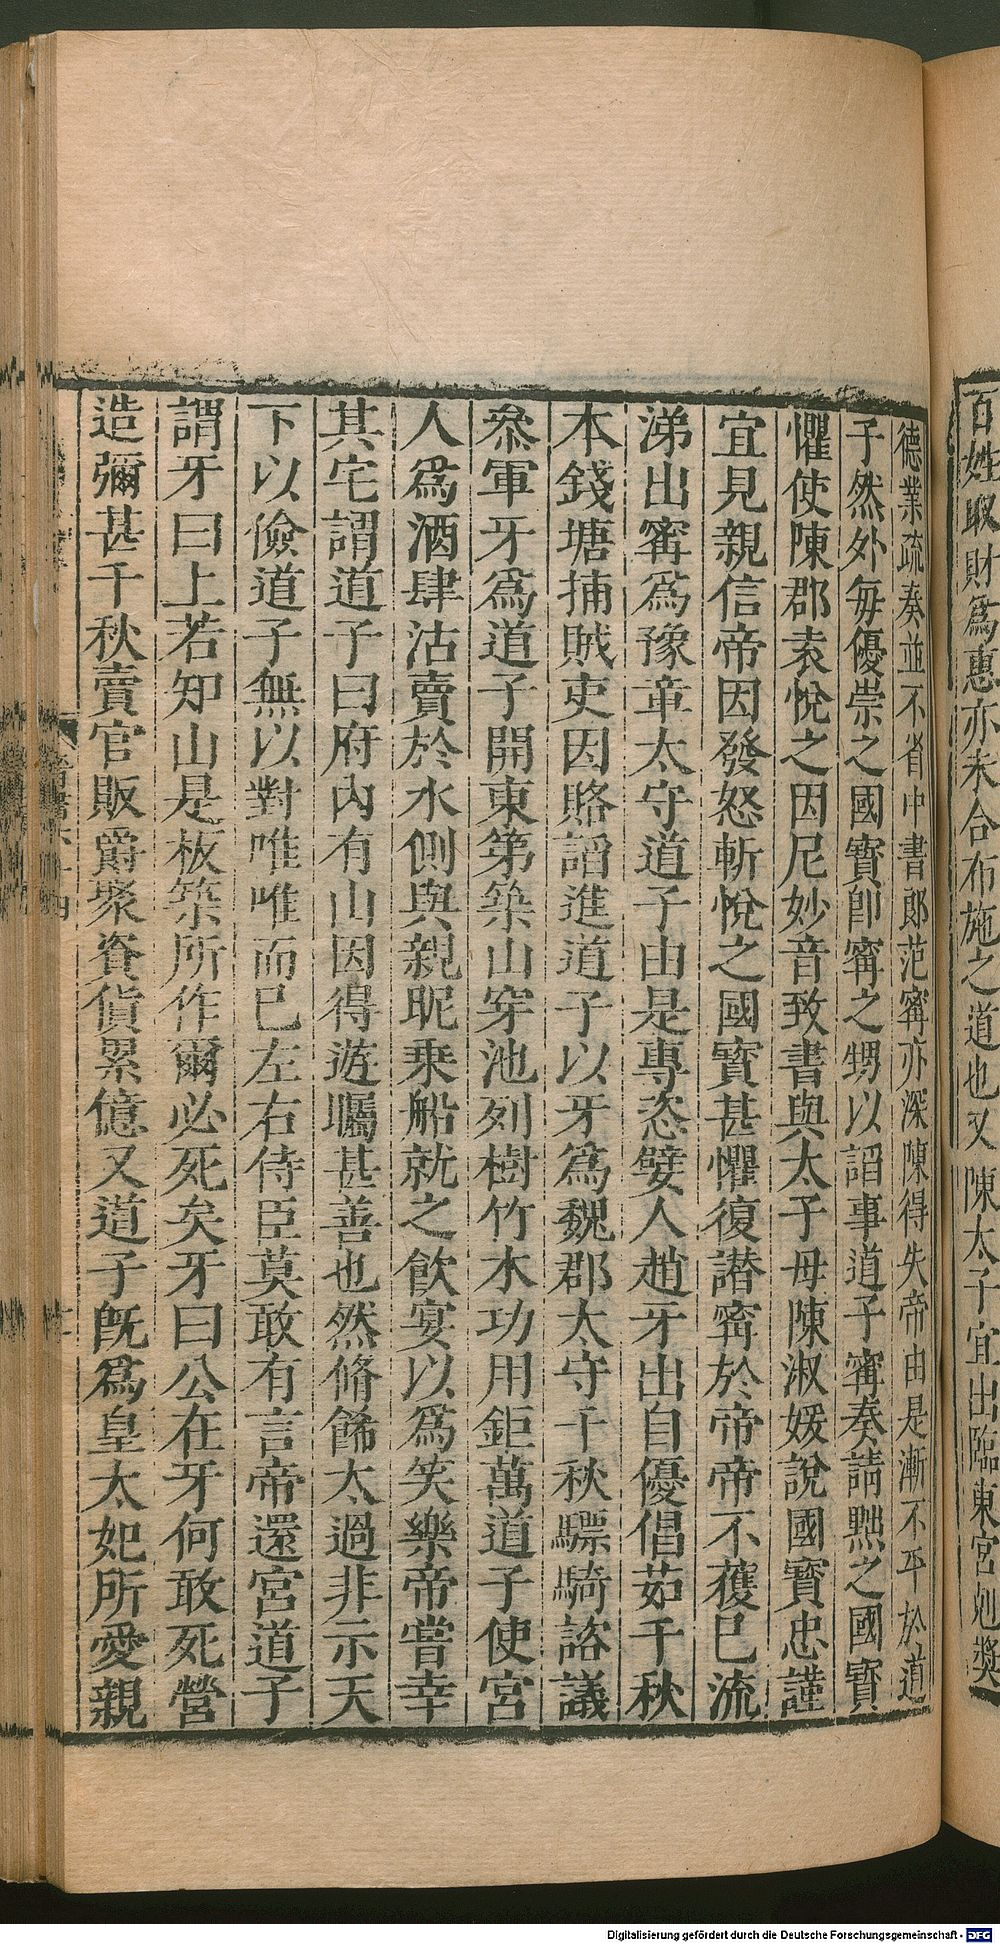 百姓取財爲惠亦未合布施之道也又陳太子宜出臨東宮剋奬
德業疏奏並不省中書郎范甯亦深陳得失帝由是漸不平於道
子然外每優崇之國寶卽甯之甥以諂事道子甯奏請黜之國寶
懼使陳郡袁悅之因尼妙音致書與太子母陳淑媛說國寶忠謹
宜見親信帝因發怒斬悅之國寶甚懼復譖甯於帝帝不獲已流
涕出甯爲豫章太守道子由是專恣嬖人趙牙出自優倡茹千秋
本錢塘捕賊吏因賂諂進道子以牙爲魏郡太守千秋驃騎諮議
叅軍牙爲道子開東第築山穿池列樹竹木功用鉅萬道子使宮
人爲酒肆沽賣於水側與親昵乗船就之飮宴以爲笑樂帝嘗幸
其宅謂道子曰府內有山因得遊矚甚善也然脩飾太過非示天
下以儉道子無以對唯唯而已左右侍臣莫敢有言帝還宮道子
謂牙曰上若知山是板築所作爾必死矣牙曰公在牙何敢死營
造彌甚千秋賣官販爵聚資貨累億又道子旣爲皇太妃所愛親
Digitalisierung gefördert durch die Deutsche Forschungsgemeinschaft - DFG